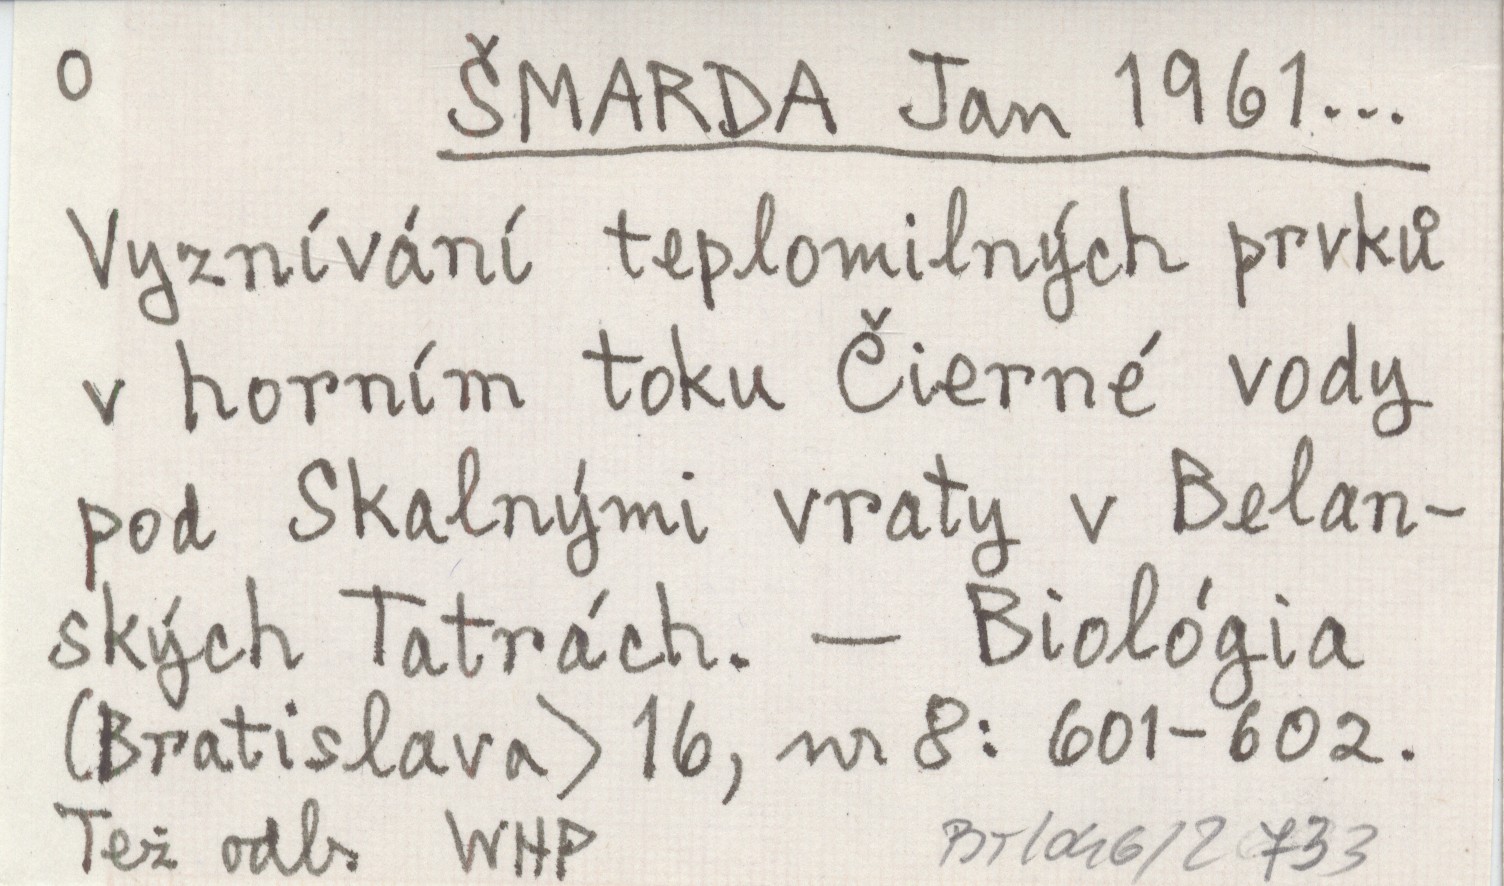 O ŠMARDA Jan 1961...
Vyznívání teplomilných prvků
v horním toku Čierné vody
pod Skalnými vraty v Belan-
ských Tatrách. — Biológia
(Bratislava) 16, nr 8: 601-602.
Też odb. WHP 733